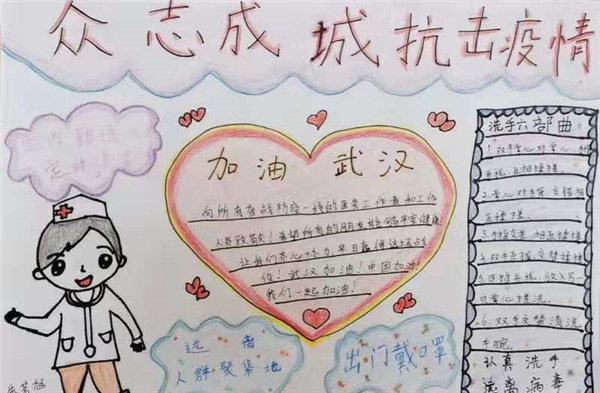 众志成城抗击疫情
室内勤通
定时清
加油 武汉
向所有奋战防疫一线的医务工作者和工作
人员致敬!希望所有的朋友能够平安健康
让我们齐心协力早日赢得这场战
役!武汉加油!中国加油!
我们一起加油!
远离
人群聚集地
出门戴口罩
洗手六部曲
1.双手掌心对掌心,
互相揉搓。
2.掌心对手背交错相
互揉搓。
3.手指交叉,相互揉搓
4.双手互握,交替揉搓
掌心揉洗。
6.双手交替清洗
手腕
认真洗手
远离病毒